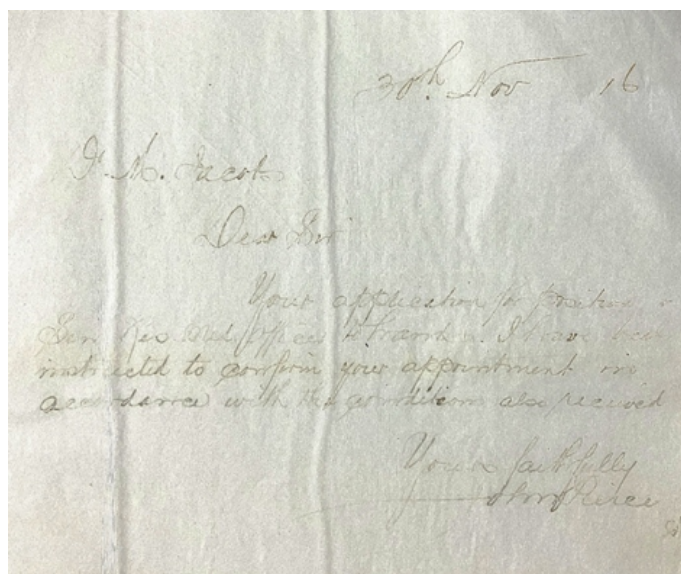 30th Nov 16
M. Jacobs
Dear Sir
Your application for position
Sen Res Med Officer to hand. I have been
instructed to confirm your appointment in
accordance with the conditions also received
Yours faithfully